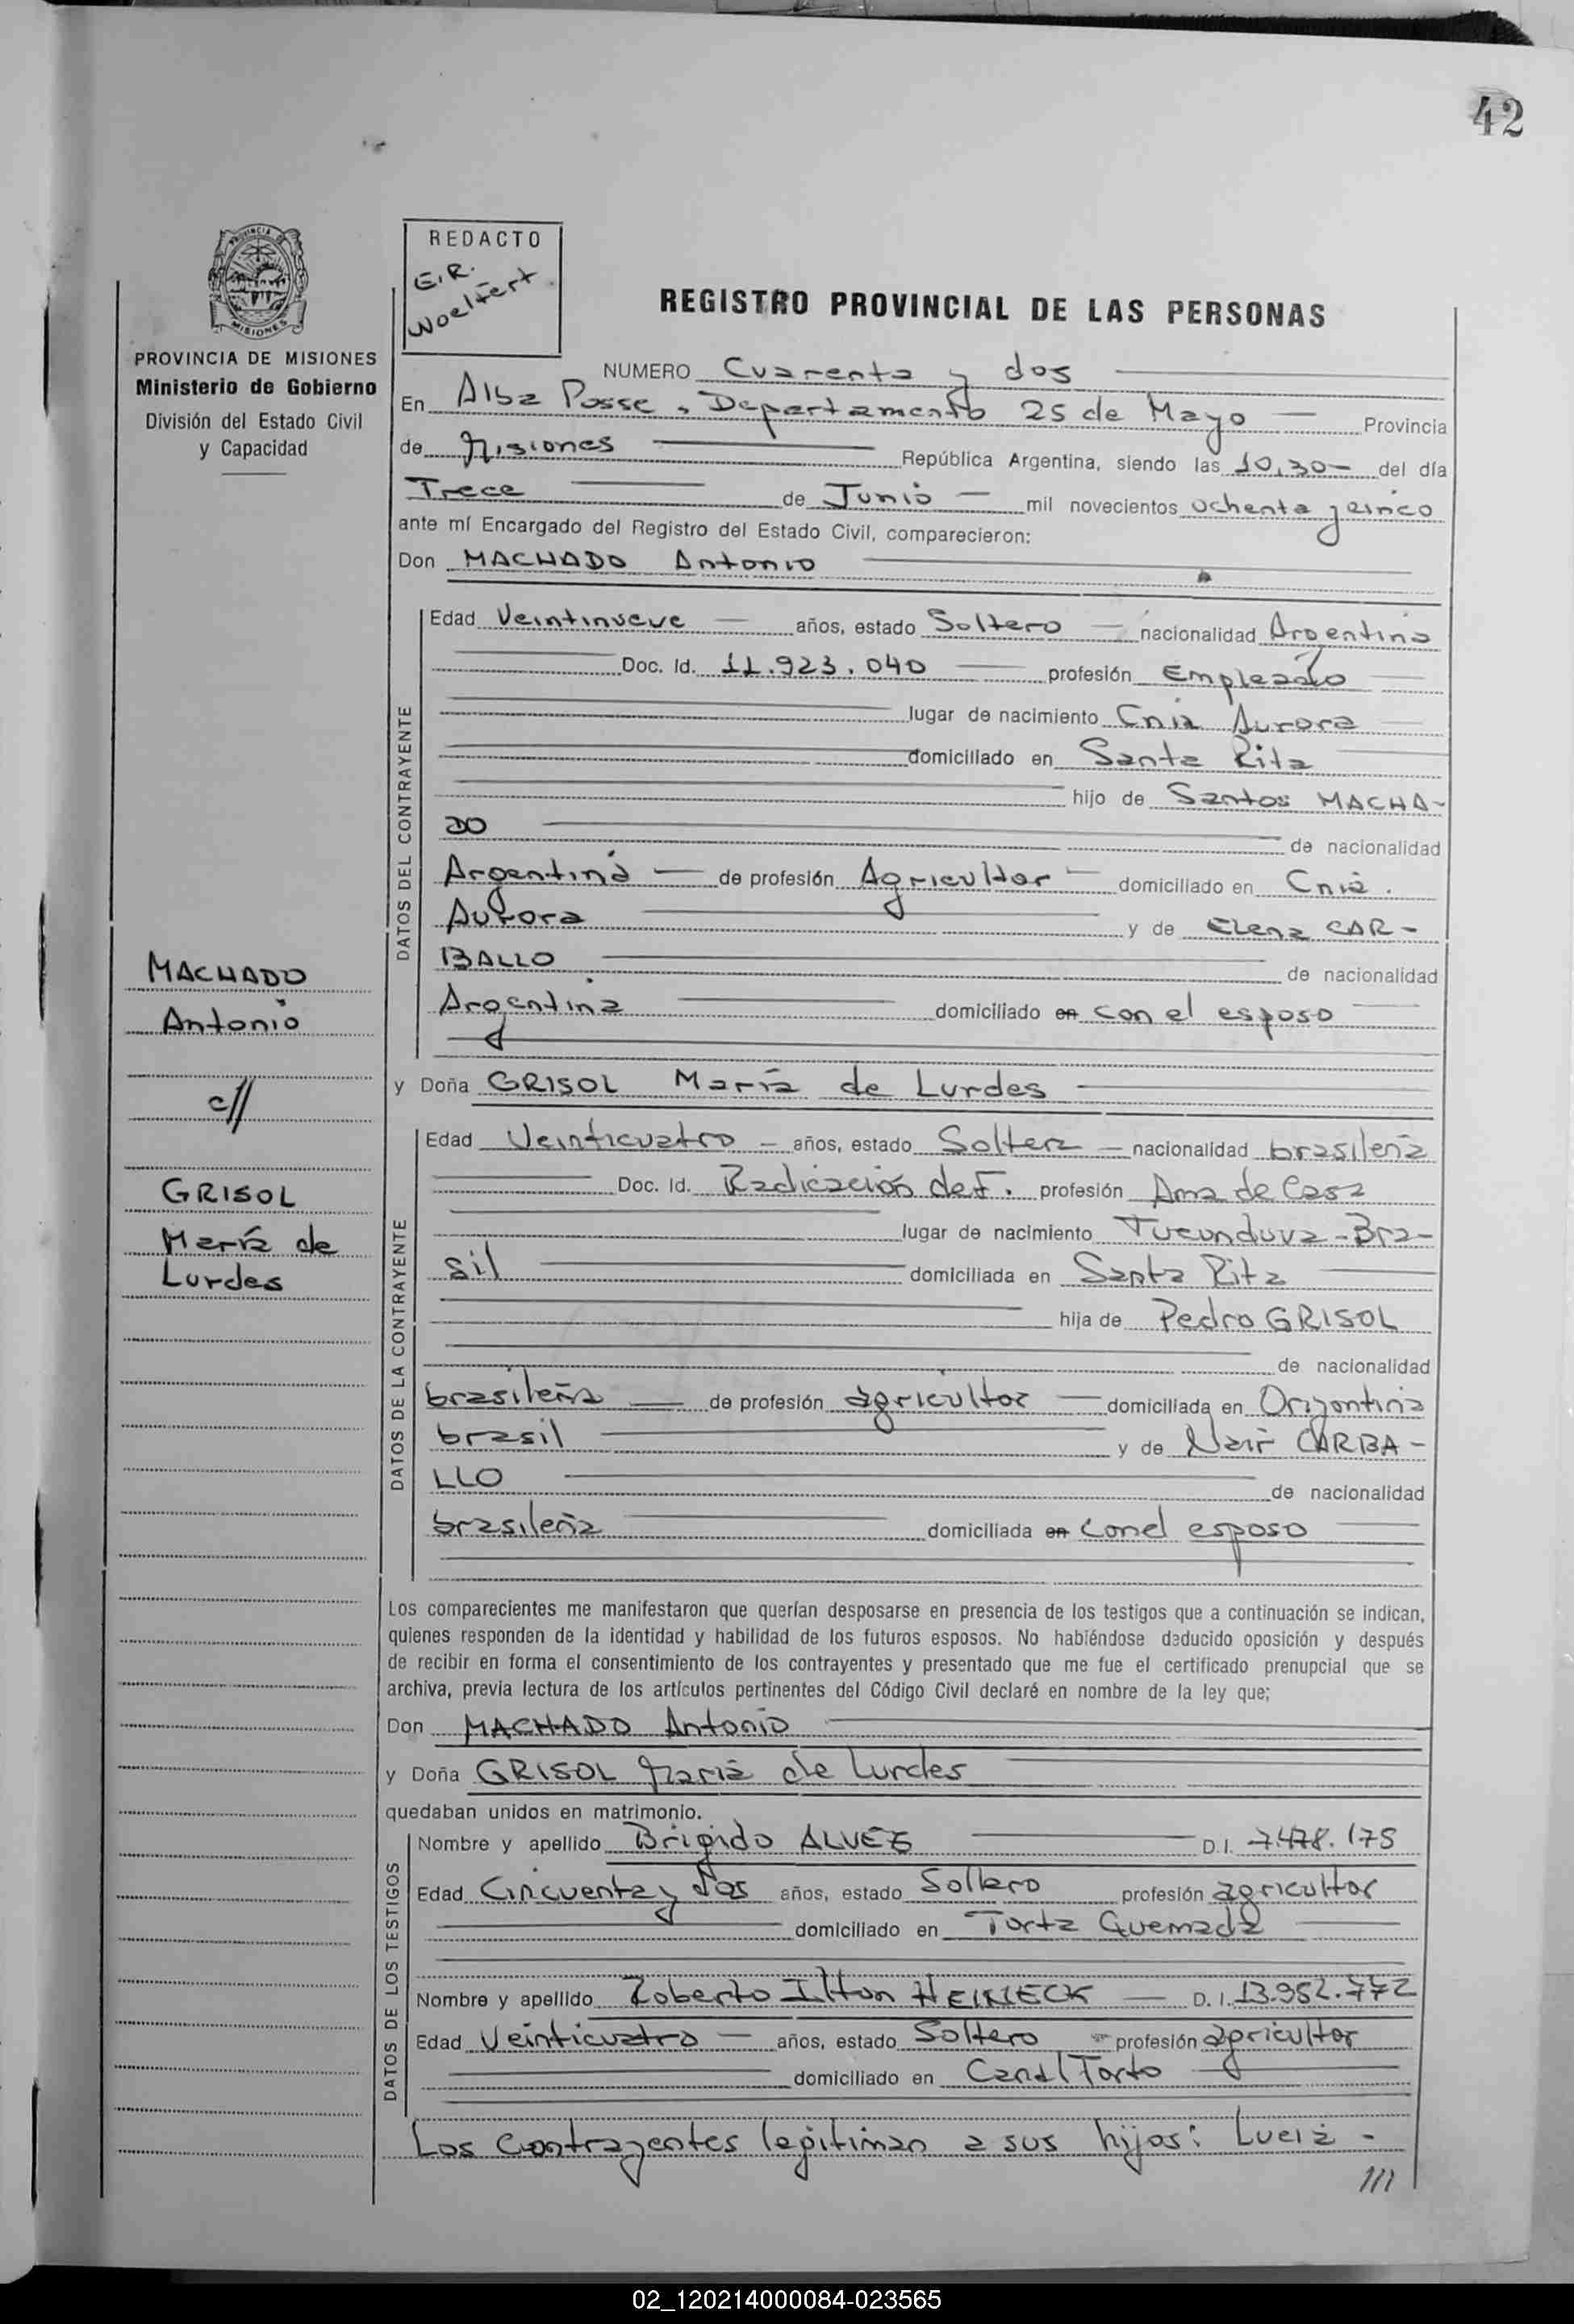 42
PROVINCIA DE MISIONES
Ministerio de Gobierno
División del Estado Civil
y Capacidad
REDACTO
E.R.
Woelfert.
REGISTRO PROVINCIAL DE LAS PERSONAS
NUMERO Cuarenta y dos
En Alba Posse, Departamento 25 de Mayo Provincia
de Misiones República Argentina, siendo las 10,30 del día
Trece de Junio mil novecientos ochenta y cinco
ante mí Encargado del Registro del Estado Civil, comparecieron:
Don MACHADO Antonio
DATOS DEL CONTRAYENTE
Edad Veintinueve años, estado Soltero nacionalidad Argentina
Doc. Id. 11.923.040 profesión Empleado
lugar de nacimiento Cnia Aurora
domiciliado en Santa Rita
hijo de Santos MACHA-
DO de nacionalidad
Argentina de profesión Agricultor domiciliado en Cnia.
Aurora y de Elena CAR-
BALLO de nacionalidad
Argentina domiciliado en con el esposo
y Doña GRISOL María de Lurdes
DATOS DE LA CONTRAYENTE
Edad Veinticuatro años, estado Soltera nacionalidad brasileña
Doc. Id. Radicación de F. profesión Ama de Casa
lugar de nacimiento Tucunduva-Bra-
sil domiciliada en Santa Rita
hija de Pedro GRISOL
de nacionalidad
brasileña de profesión agricultor domiciliada en Orizontina
brasil y de Nair CARBA-
LLO de nacionalidad
brasileña domiciliada en con el esposo
MACHADO
Antonio
c//
GRISOL
María de
Lurdes
Los comparecientes me manifestaron que querían desposarse en presencia de los testigos que a continuación se indican,
quienes responden de la identidad y habilidad de los futuros esposos. No habiéndose deducido oposición y después
de recibir en forma el consentimiento de los contrayentes y presentado que me fue el certificado prenupcial que se
archiva, previa lectura de los artículos pertinentes del Código Civil declaré en nombre de la ley que;
Don MACHADO Antonio
y Doña GRISOL María de Lurdes
quedaban unidos en matrimonio.
DATOS DE LOS TESTIGOS
Nombre y apellido Brigido ALVEZ D.I. 7.478.175
Edad Cincuenta y dos años, estado Soltero profesión agricultor
domiciliado en Torta Quemada
Nombre y apellido Roberto Ilton HEINECK D.I. 13.952.772
Edad Veinticuatro años, estado Soltero profesión agricultor
domiciliado en Canal Torto
Los contrayentes legitiman a sus hijos: Lucia -
///
02_120214000084-023565